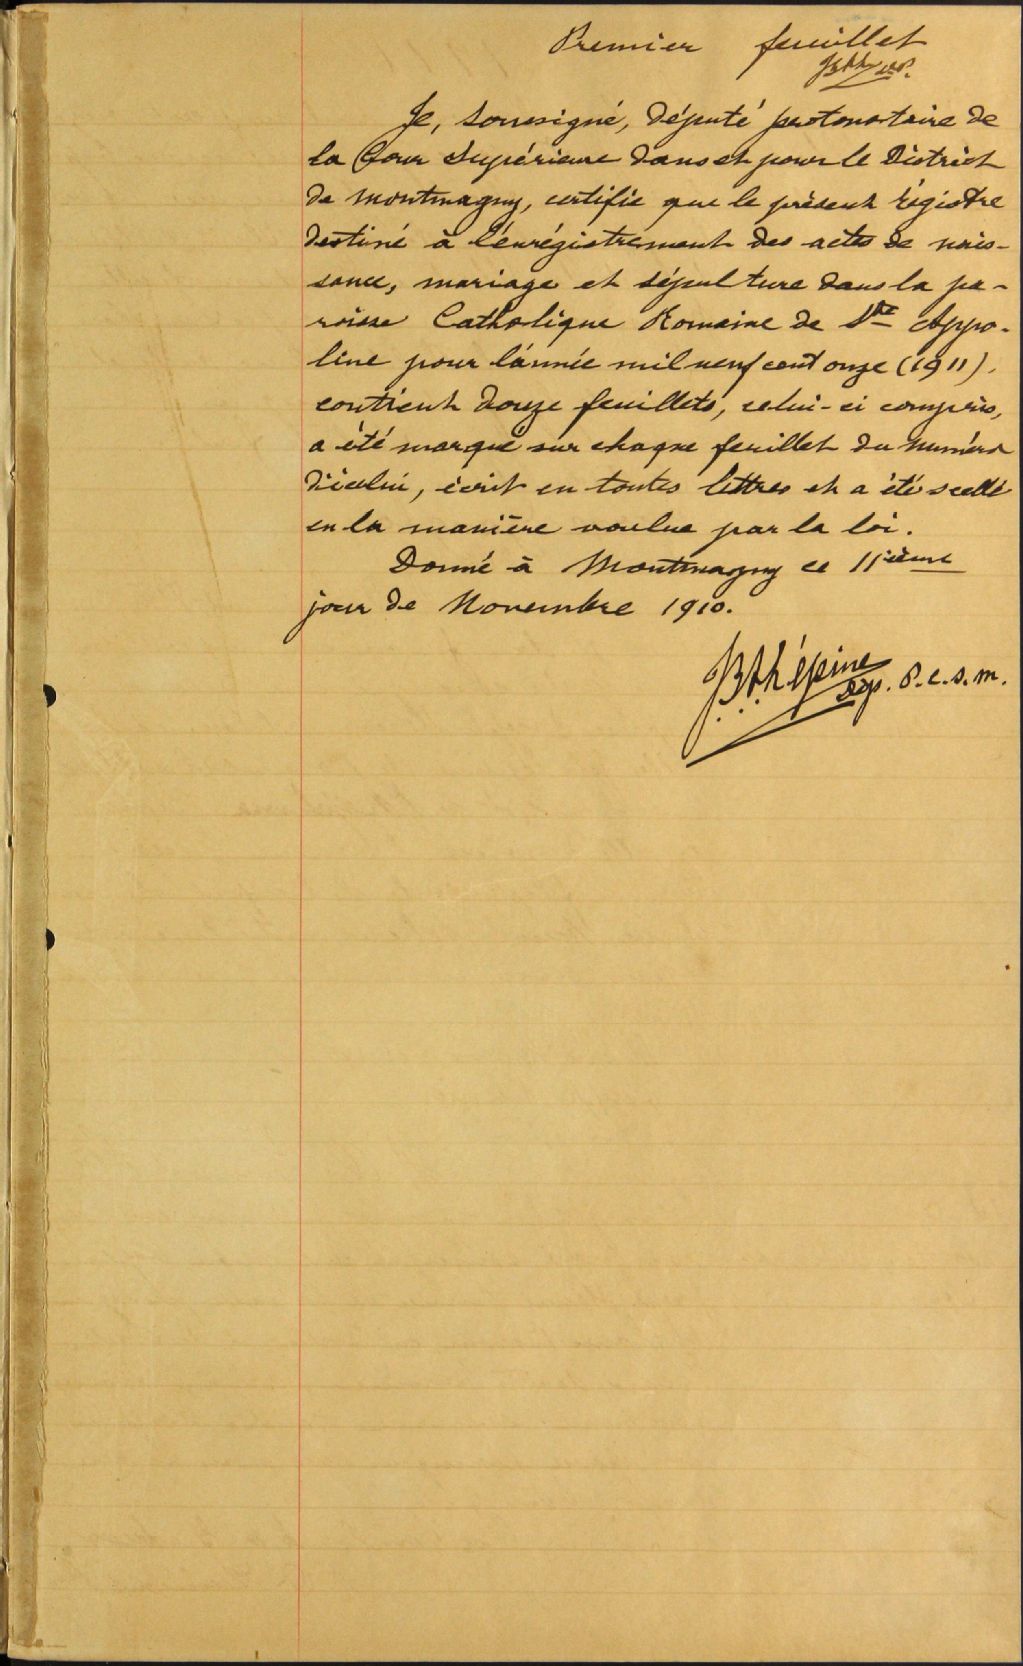 Premier feuillet
Je, soussigné, député protonotaire de
la Cour Supérieure dans et pour le District
de Montmagny, certifie que le présent régistre
destiné à l'enrégistrement des actes de nais-
sance, mariage et sépulture dans la pa-
roisse Catholique Romaine de Ste Appo-
line pour l'année mil neuf cent onze (1911),
contient douze feuillets, celui-ci compris,
a été marqué sur chaque feuillet du numéro
d'icelui, écrit en toutes lettres et a été scellé
en la manière voulue par la loi.
Donné à Montmagny ce 11ième
jour de Novembre 1910.
Lépine
Dép. P.C.S.M.